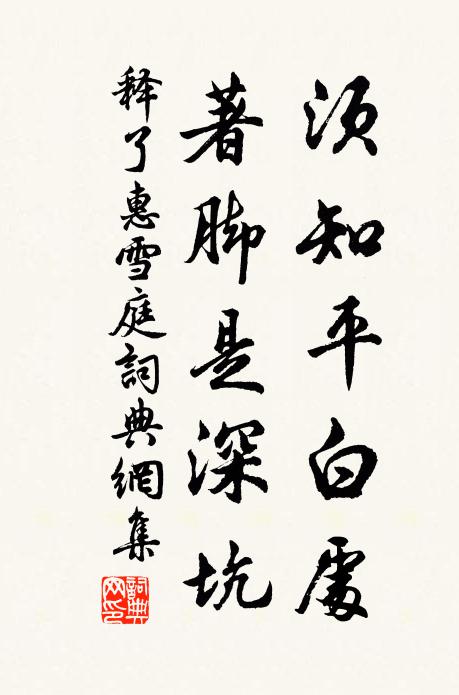 须知平白處
著脚是深坑
释了惠雪庭詞典網集
詞典網印